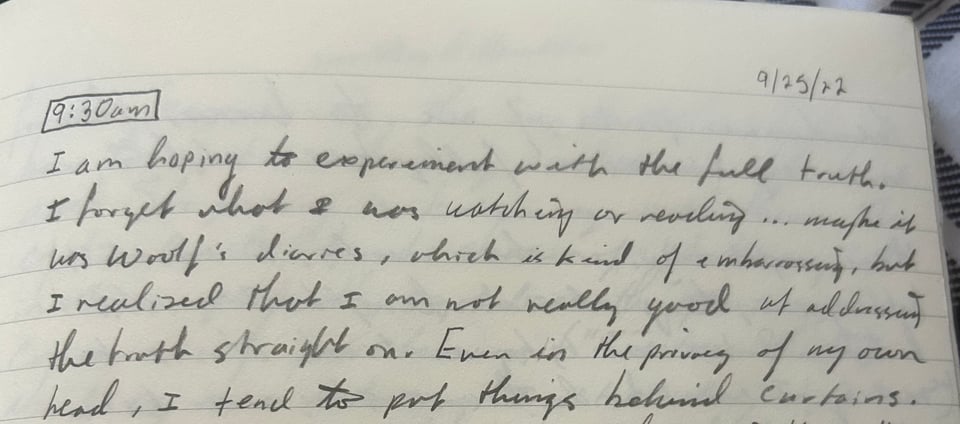 9/25/22
9:30am
I am hoping to experiment with the full truth.
I forget what I was watching or reading... maybe it
was Woolf's diaries, which is kind of embarrassing, but
I realized that I am not really good at addressing
the truth straight on. Even in the privacy of my own
head, I tend to put things behind curtains.